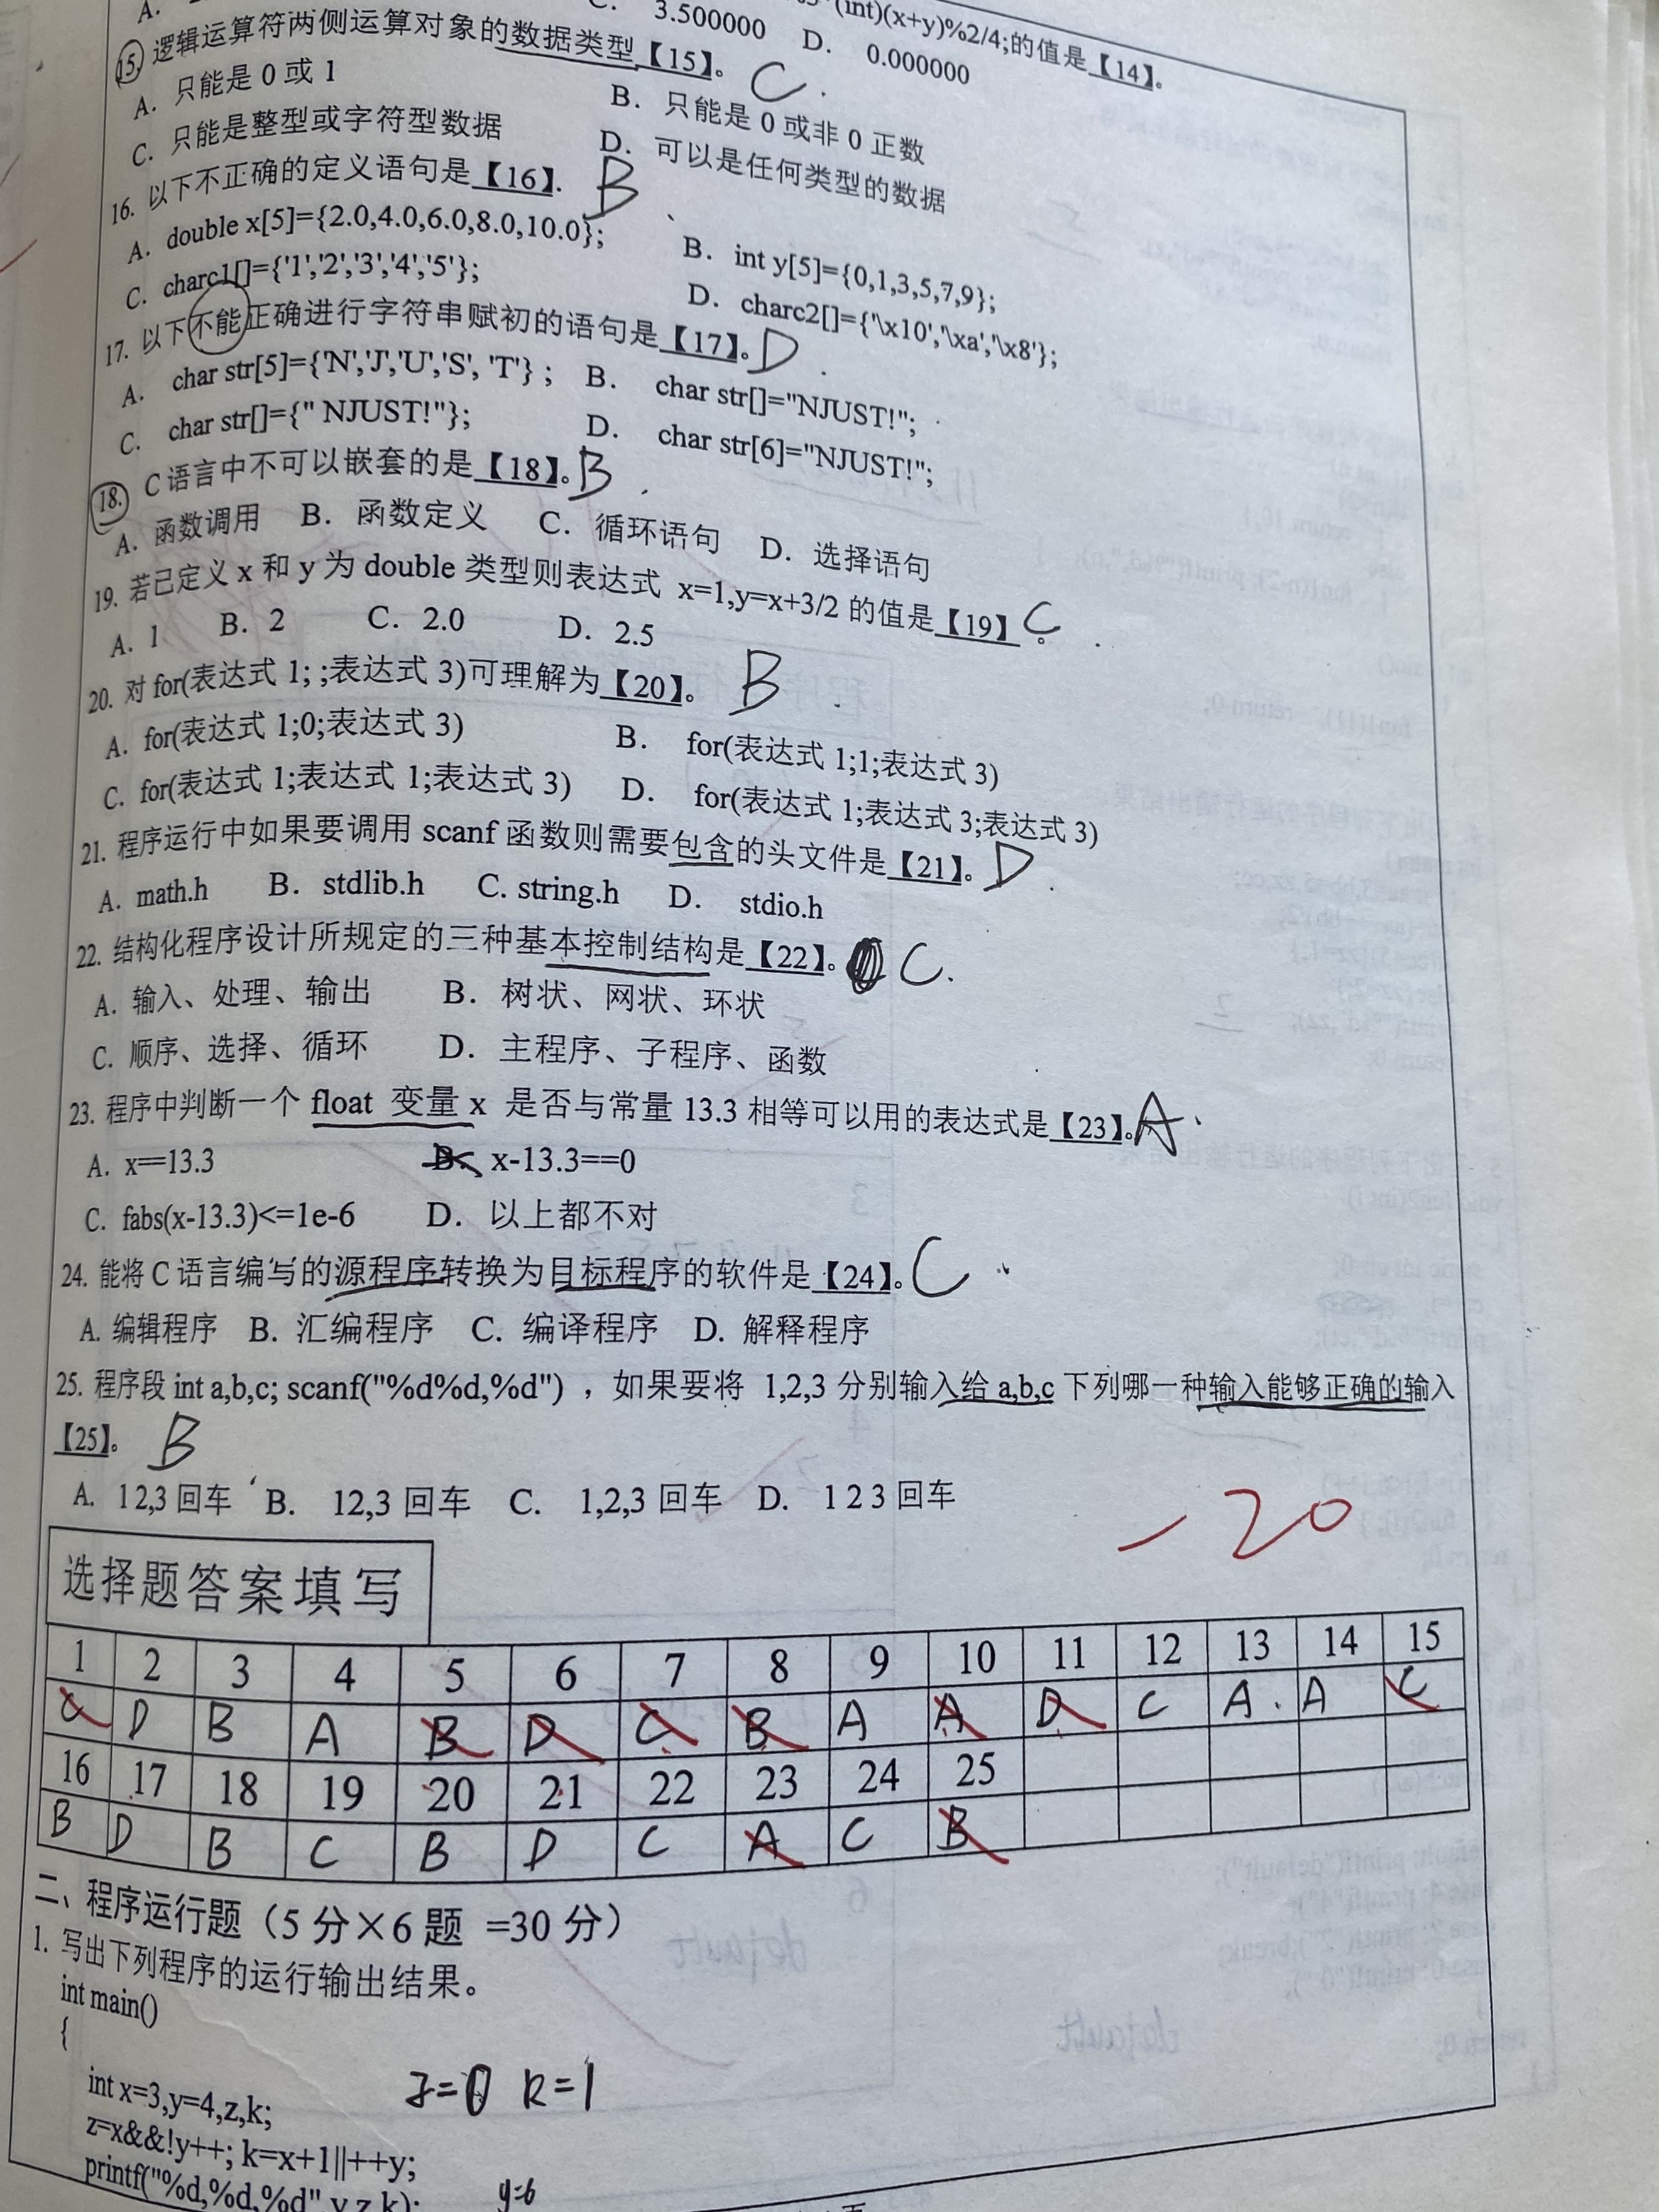 (int)(x+y)%2/4;的值是【14】。
A.
C. 3.500000 D. 0.000000
15. 逻辑运算符两侧运算对象的数据类型【15】。 C
A. 只能是 0 或 1 B. 只能是 0 或非 0 正数
C. 只能是整型或字符型数据 D. 可以是任何类型的数据
16. 以下不正确的定义语句是【16】. B
A. double x[5]={2.0,4.0,6.0,8.0,10.0}; B. int y[5]={0,1,3,5,7,9};
C. charc1[]={'1','2','3','4','5'}; D. charc2[]={'\x10','\xa','\x8'};
17. 以下不能正确进行字符串赋初的语句是【17】。 D
A. char str[5]={'N','J','U','S', 'T'} ; B. char str[]="NJUST!";
C. char str[]={" NJUST!"}; D. char str[6]="NJUST!";
18. C 语言中不可以嵌套的是【18】。 B
A. 函数调用 B. 函数定义 C. 循环语句 D. 选择语句
19. 若已定义 x 和 y 为 double 类型则表达式 x=1,y=x+3/2 的值是【19】。 C
A. 1 B. 2 C. 2.0 D. 2.5
20. 对 for(表达式 1; ;表达式 3)可理解为【20】。 B
A. for(表达式 1;0;表达式 3) B. for(表达式 1;1;表达式 3)
C. for(表达式 1;表达式 1;表达式 3) D. for(表达式 1;表达式 3;表达式 3)
21. 程序运行中如果要调用 scanf 函数则需要包含的头文件是【21】。 D
A. math.h B. stdlib.h C. string.h D. stdio.h
22. 结构化程序设计所规定的三种基本控制结构是【22】。 C.
A. 输入、处理、输出 B. 树状、网状、环状
C. 顺序、选择、循环 D. 主程序、子程序、函数
23. 程序中判断一个 float 变量 x 是否与常量 13.3 相等可以用的表达式是【23】。 A.
A. x==13.3 B. x-13.3==0
C. fabs(x-13.3)<=1e-6 D. 以上都不对
24. 能将 C 语言编写的源程序转换为目标程序的软件是【24】。 C
A. 编辑程序 B. 汇编程序 C. 编译程序 D. 解释程序
25. 程序段 int a,b,c; scanf("%d%d,%d") ，如果要将 1,2,3 分别输入给 a,b,c 下列哪一种输入能够正确的输入
【25】。 B
A. 1 2,3 回车 B. 12,3 回车 C. 1,2,3 回车 D. 1 2 3 回车
-20
选择题答案填写
1 2 3 4 5 6 7 8 9 10 11 12 13 14 15
C D B A B D C B A A D C A. A C
16 17 18 19 20 21 22 23 24 25
B D B C B D C A C B
二、程序运行题（5 分×6 题 =30 分）
1. 写出下列程序的运行输出结果。
int main()
{
int x=3,y=4,z,k; z=0 k=1
z=x&&!y++; k=x+1||++y;
printf("%d,%d,%d",y,z,k); y=6